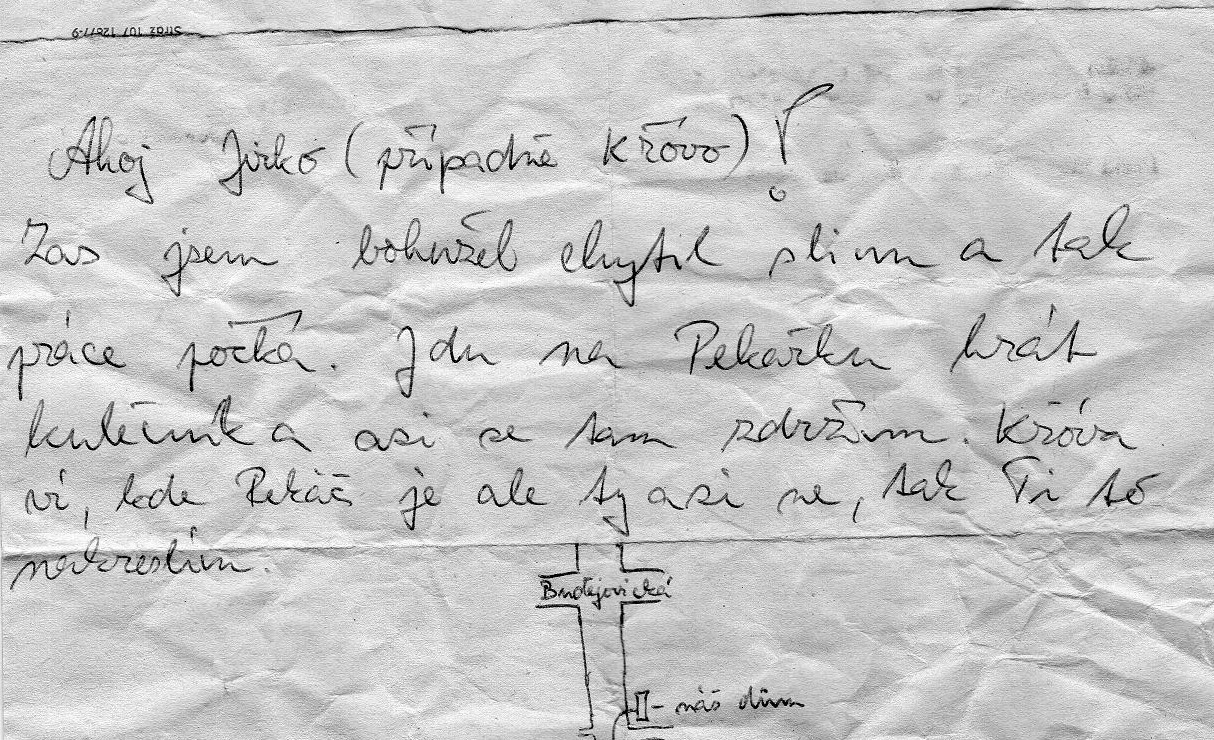 Stráž 107 12677-9
Ahoj Jirko (případně Křóvo)!
Zas jsem bohužel chytil slinu a tak
práce počká. Jdu na Pekařku hrát
kulečník a asi se tam zdržím. Křóva
ví, kde Pekáč je ale ty asi ne, tak Ti to
nakreslím.
Budějovická
náš dům